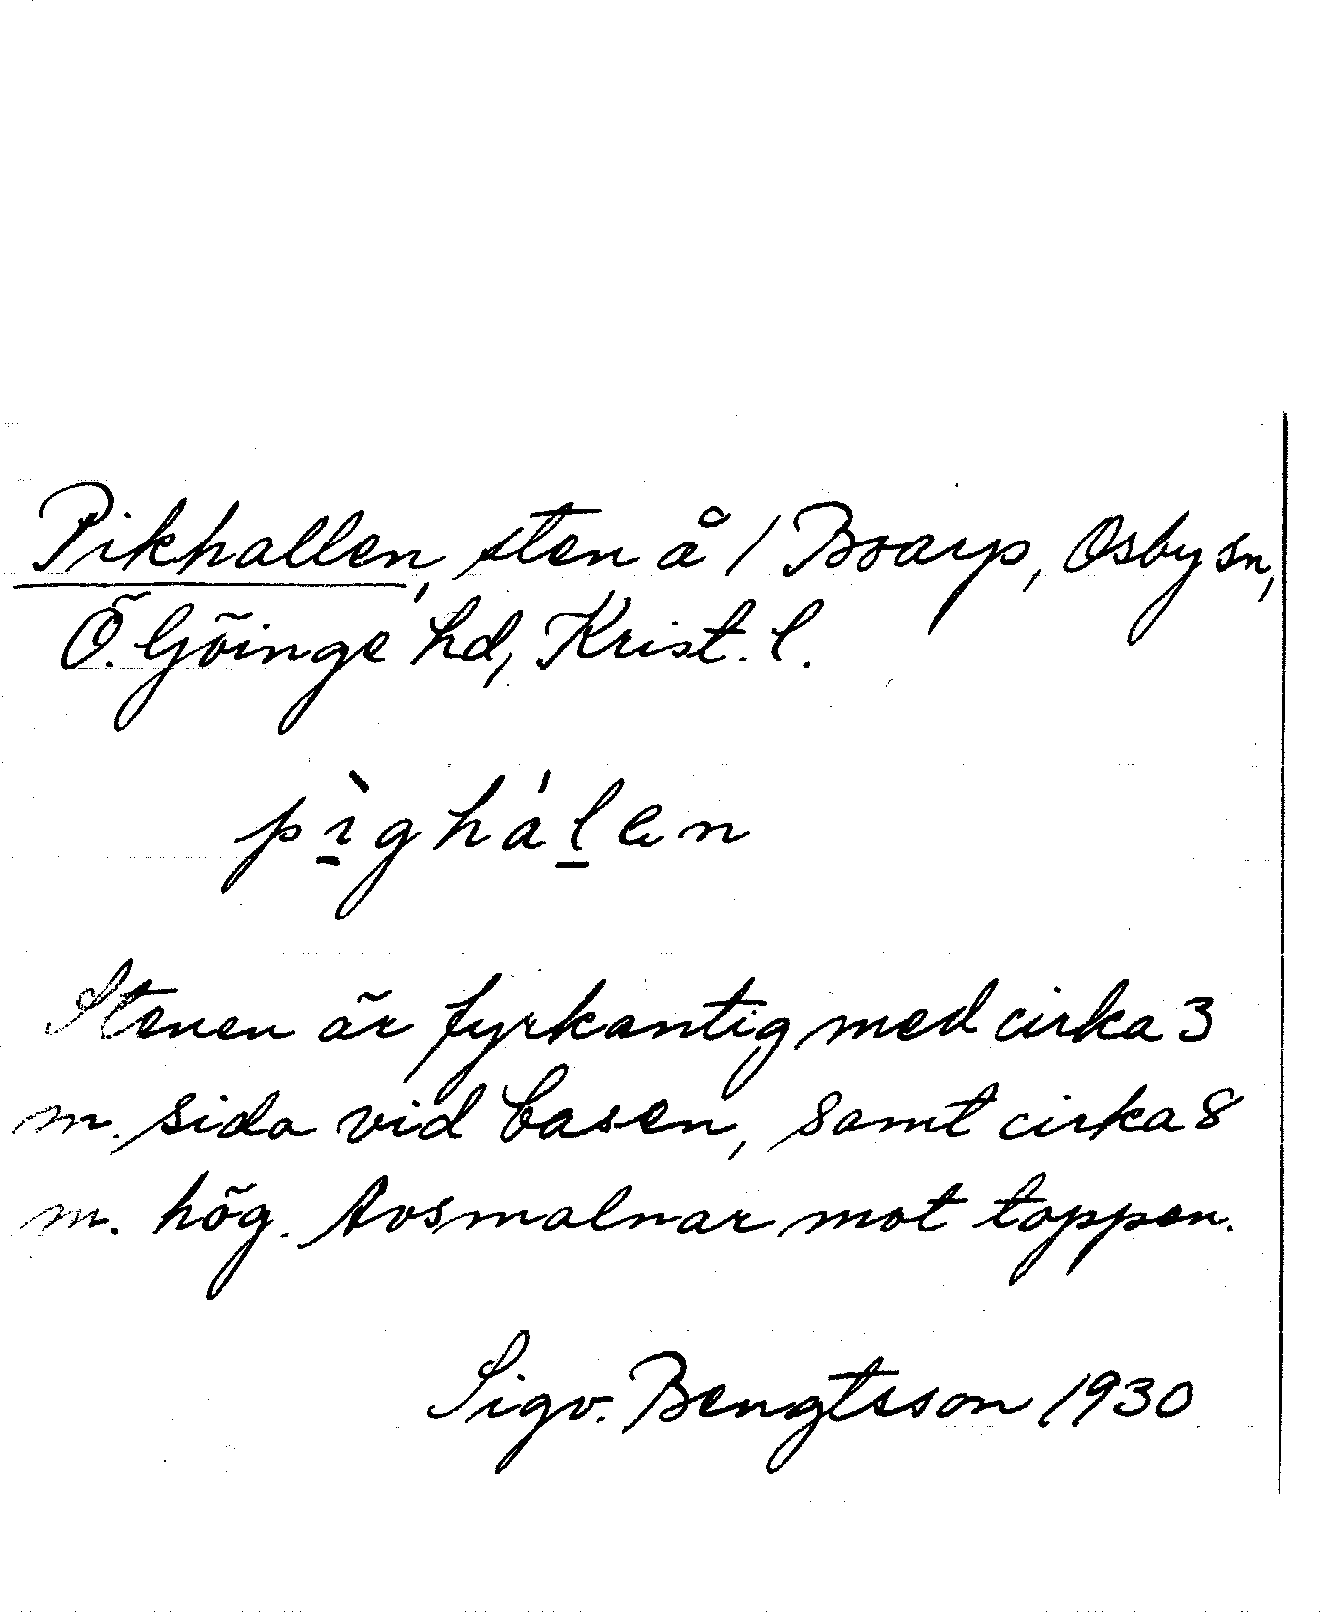 Pikhallen, sten å 1 Boarp, Osby sn,
Ö. Göinge hd, Krist. l.
pìghálen
Stenen är fyrkantig med cirka 3
m. sida vid basen, samt cirka 8
m. hög. Avsmalnar mot toppen.
Sigv. Bengtsson 1930